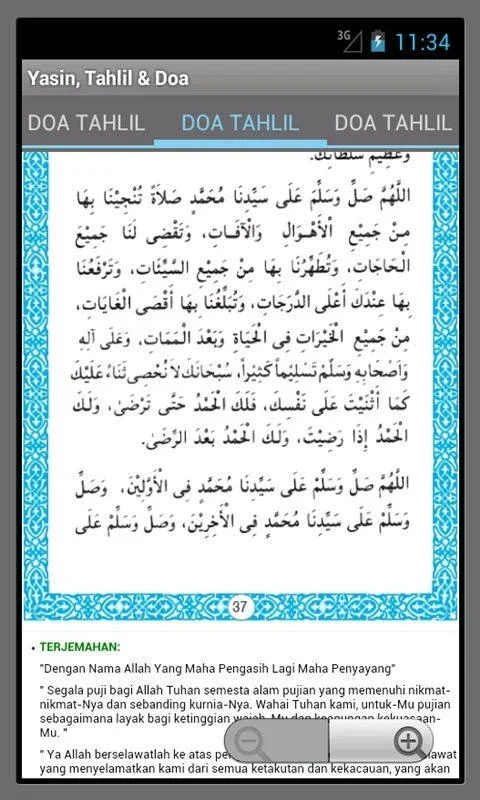 3G 11:34
Yasin, Tahlil & Doa
DOA TAHLIL DOA TAHLIL DOA TAHLIL
وَعَظِيْمِ سُلْطَانِكَ.
اَللّٰهُمَّ صَلِّ وَسَلِّمْ عَلَى سَيِّدِنَا مُحَمَّدٍ صَلَاةً تُنْجِيْنَا بِهَا
مِنْ جَمِيْعِ الْأَهْوَالِ وَالْآفَاتِ، وَتَقْضِى لَنَا جَمِيْعَ
الْحَاجَاتِ، وَتُطَهِّرُنَا بِهَا مِنْ جَمِيْعِ السَّيِّئَاتِ، وَتَرْفَعُنَا
بِهَا عِنْدَكَ أَعْلَى الدَّرَجَاتِ، وَتُبَلِّغُنَا بِهَا أَقْصَى الْغَايَاتِ،
مِنْ جَمِيْعِ الْخَيْرَاتِ فِى الْحَيَاةِ وَبَعْدَ الْمَمَاتِ، وَعَلَى آلِهِ
وَأَصْحَابِهِ وَسَلِّمْ تَسْلِيْمًا كَثِيْرًا، سُبْحَانَكَ لَا نُحْصِى ثَنَاءً عَلَيْكَ
كَمَا أَثْنَيْتَ عَلَى نَفْسِكَ، فَلَكَ الْحَمْدُ حَتَّى تَرْضَى، وَلَكَ
الْحَمْدُ إِذَا رَضِيْتَ، وَلَكَ الْحَمْدُ بَعْدَ الرِّضَى.
اَللّٰهُمَّ صَلِّ وَسَلِّمْ عَلَى سَيِّدِنَا مُحَمَّدٍ فِى الْأَوَّلِيْنَ، وَصَلِّ
وَسَلِّمْ عَلَى سَيِّدِنَا مُحَمَّدٍ فِى الْآخِرِيْنَ، وَصَلِّ وَسَلِّمْ عَلَى
37
• TERJEMAHAN:
"Dengan Nama Allah Yang Maha Pengasih Lagi Maha Penyayang"
" Segala puji bagi Allah Tuhan semesta alam pujian yang memenuhi nikmat-
nikmat-Nya dan sebanding kurnia-Nya. Wahai Tuhan kami, untuk-Mu pujian
sebagaimana layak bagi ketinggian wajah-Mu dan keagungan kekuasaan-
Mu. "
" Ya Allah berselawatlah ke atas
yang menyelamatkan kami dari semua ketakutan dan kekacauan, yang akan